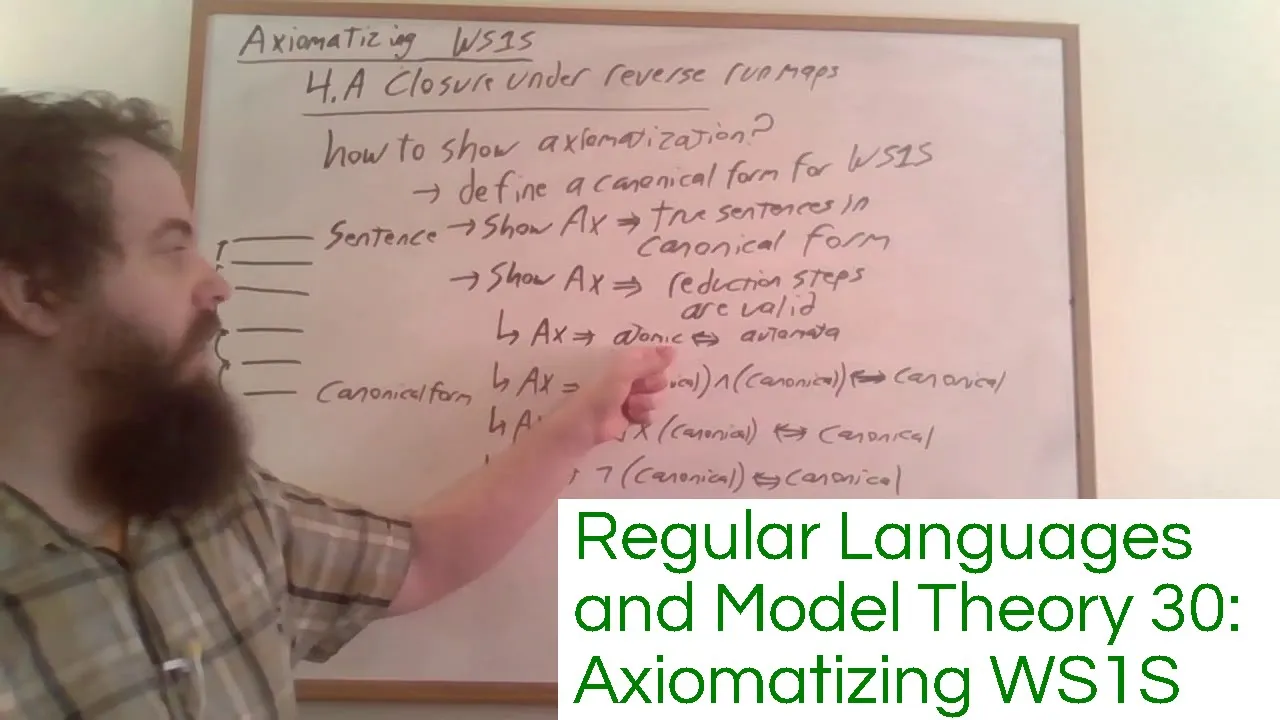 Axiomatizing WS1S
4.A Closure under reverse run maps
how to show axiomatization?
→ define a canonical form for WS1S
Sentence → Show Ax ⇒ true sentences in
canonical form
→ Show Ax ⇒ reduction steps
are valid
↳ Ax ⇒ atomic ⇔ automata
Canonical form ↳ Ax ⇒ ical) ∧ (Canonical) ⇔ Canonical
↳ A x (Canonical) ⇔ Canonical
¬ (Canonical) ⇔ Canonical
Regular Languages
and Model Theory 30:
Axiomatizing WS1S